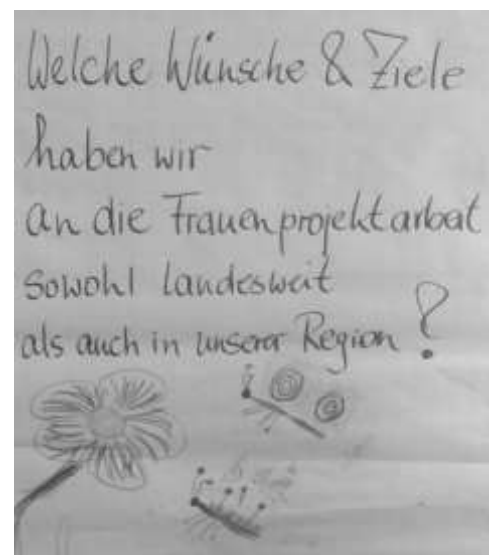 Welche Wünsche & Ziele
haben wir
an die Frauenprojektarbeit
sowohl landesweit
als auch in unserer Region?